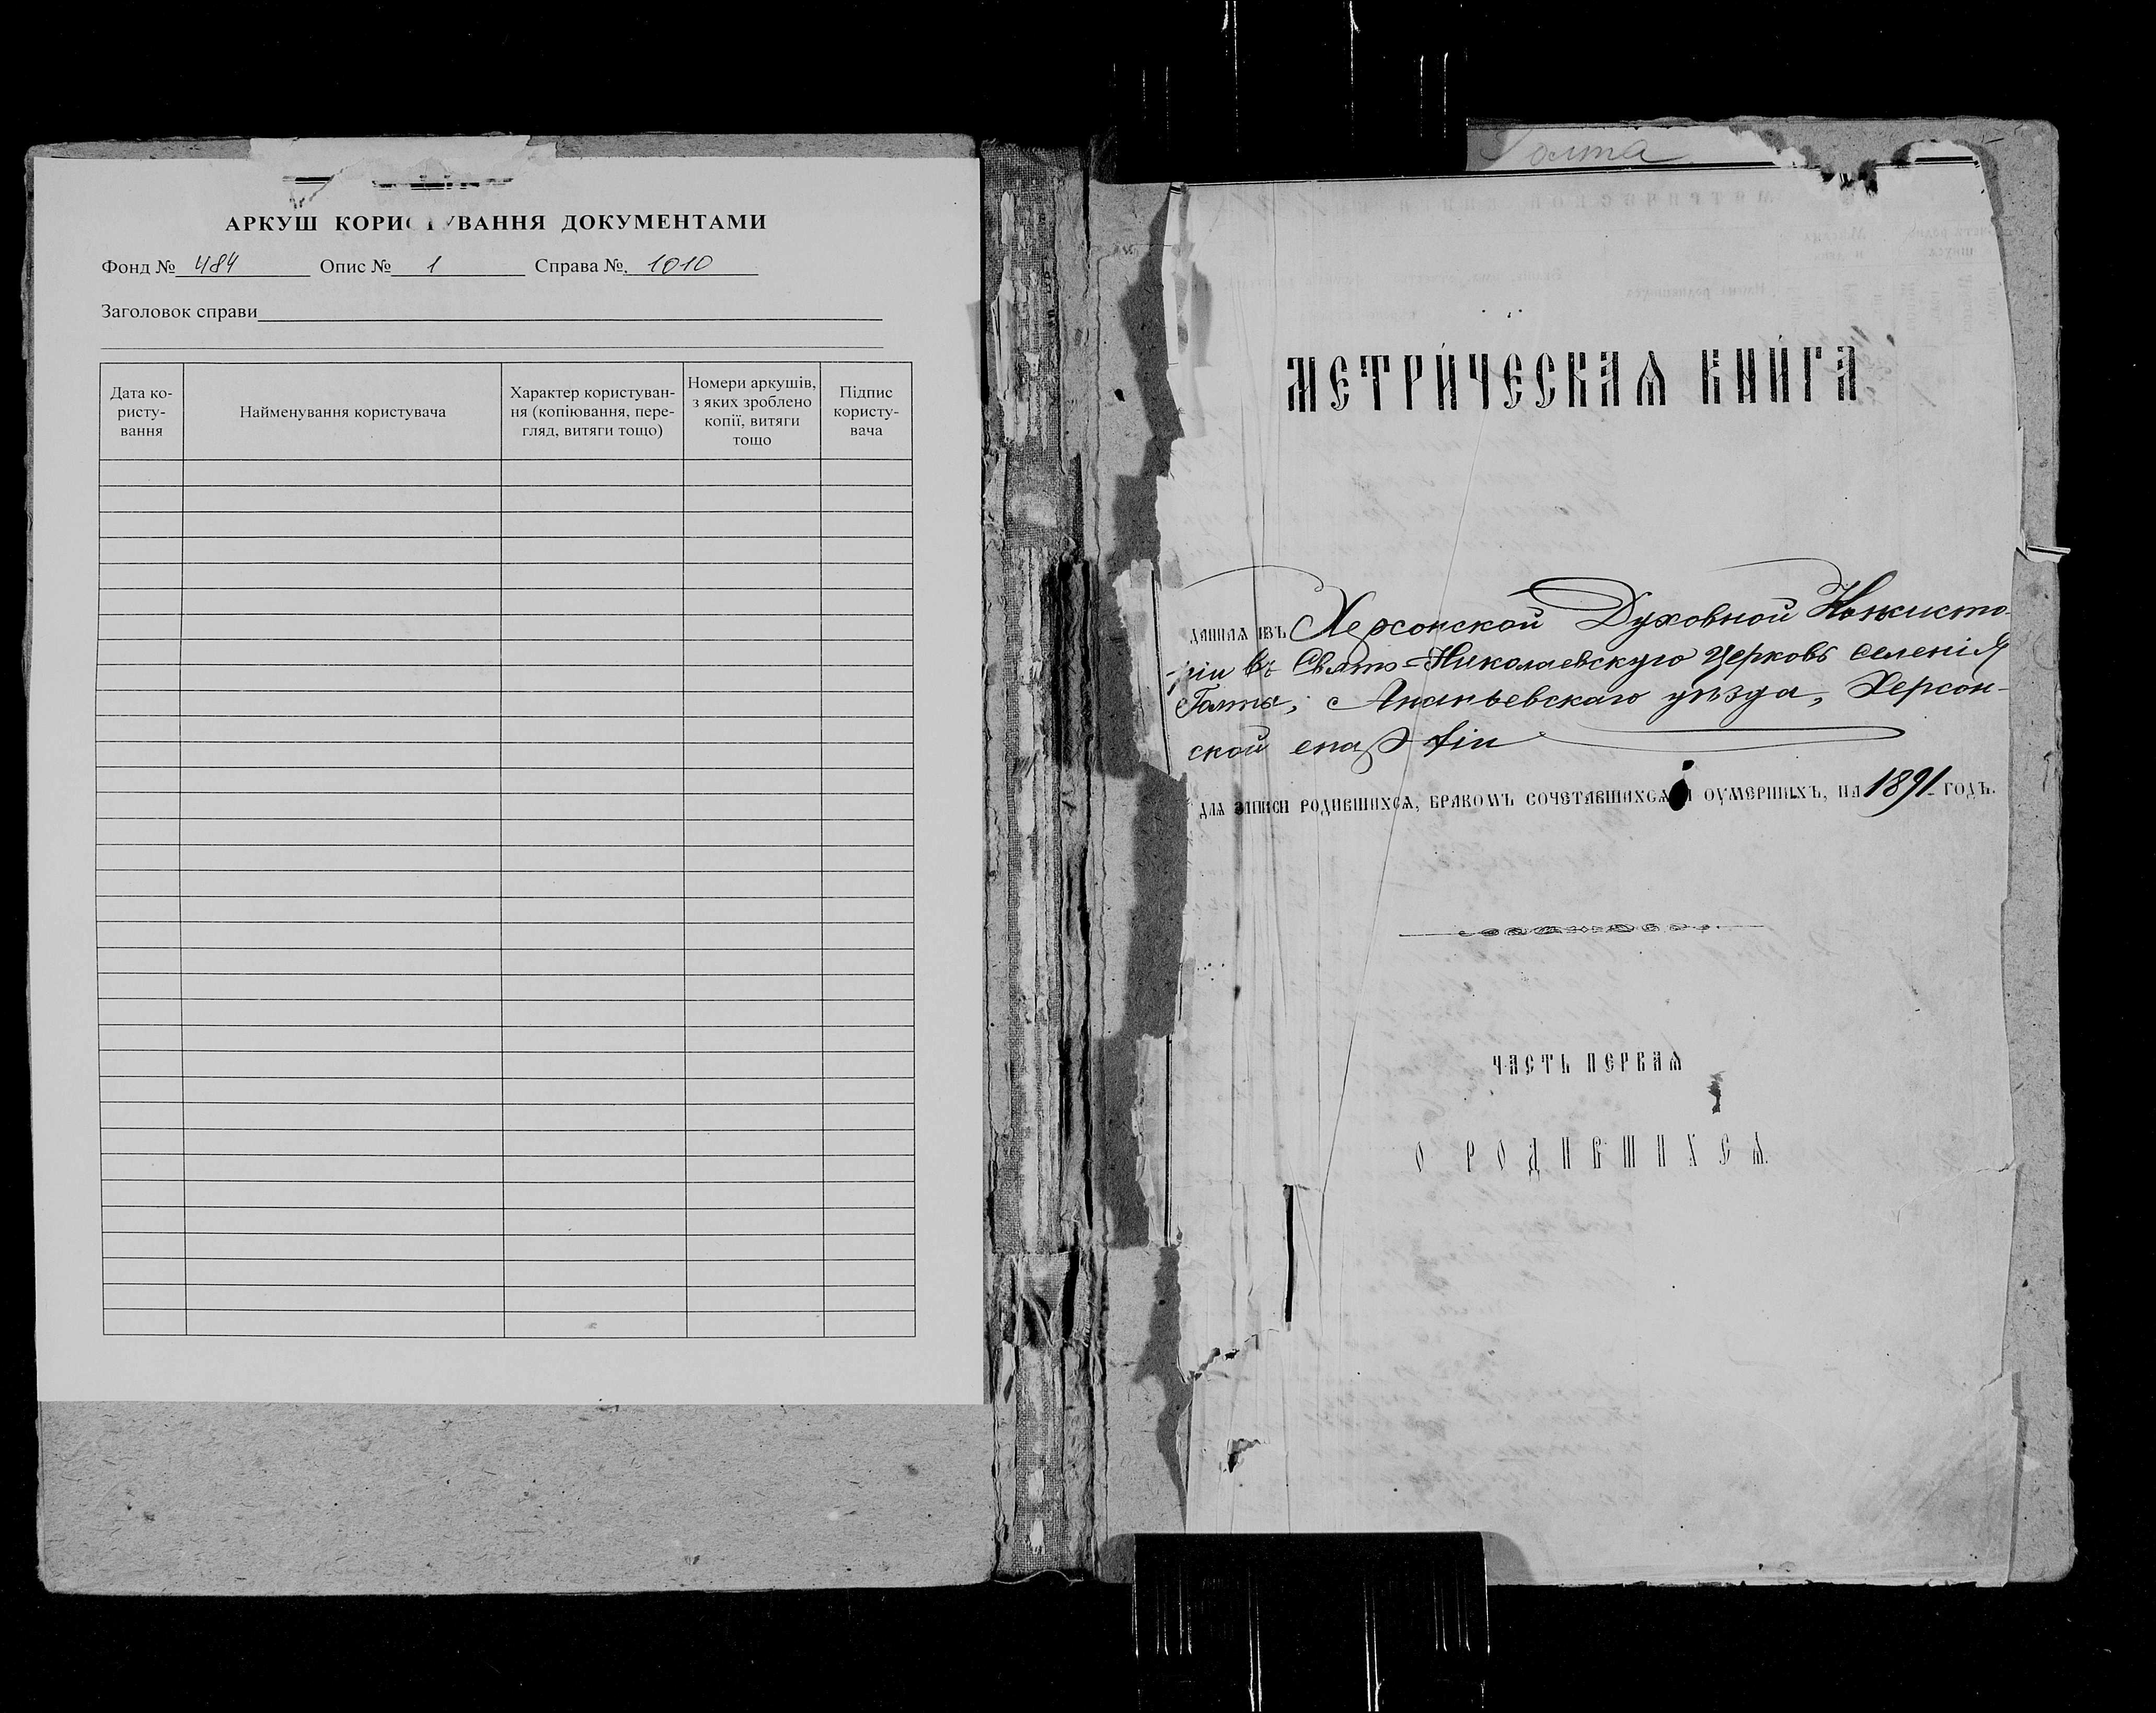 АРКУШ КОРИСТУВАННЯ ДОКУМЕНТАМИ
Фонд № 484 Опис № 1 Справа № 1010
Заголовок справи
Дата ко-
ристу-
вання
Найменування користувача
Характер користуван-
ня (копіювання, пере-
гляд, витяги тощо)
Номери аркушів,
з яких зроблено
копії, витяги
тощо
Підпис
користу-
вача
Голта
МЕТРИ́ЧЕСКАѦ КНИ́ГА
даннаѧ изъ Херсонской Духовной Консисто-
ріи въ Свято-Николаевскую церковь селенія
Голты, Ананьевскаго уѣзда, Херсон-
ской епархіи
длѧ записи родившихсѧ, бракомъ сочетавшихсѧ и оумершихъ, на 1891 годъ.
ЧАСТЬ ПЕРВАѦ
О РОДИВШИХСѦ.